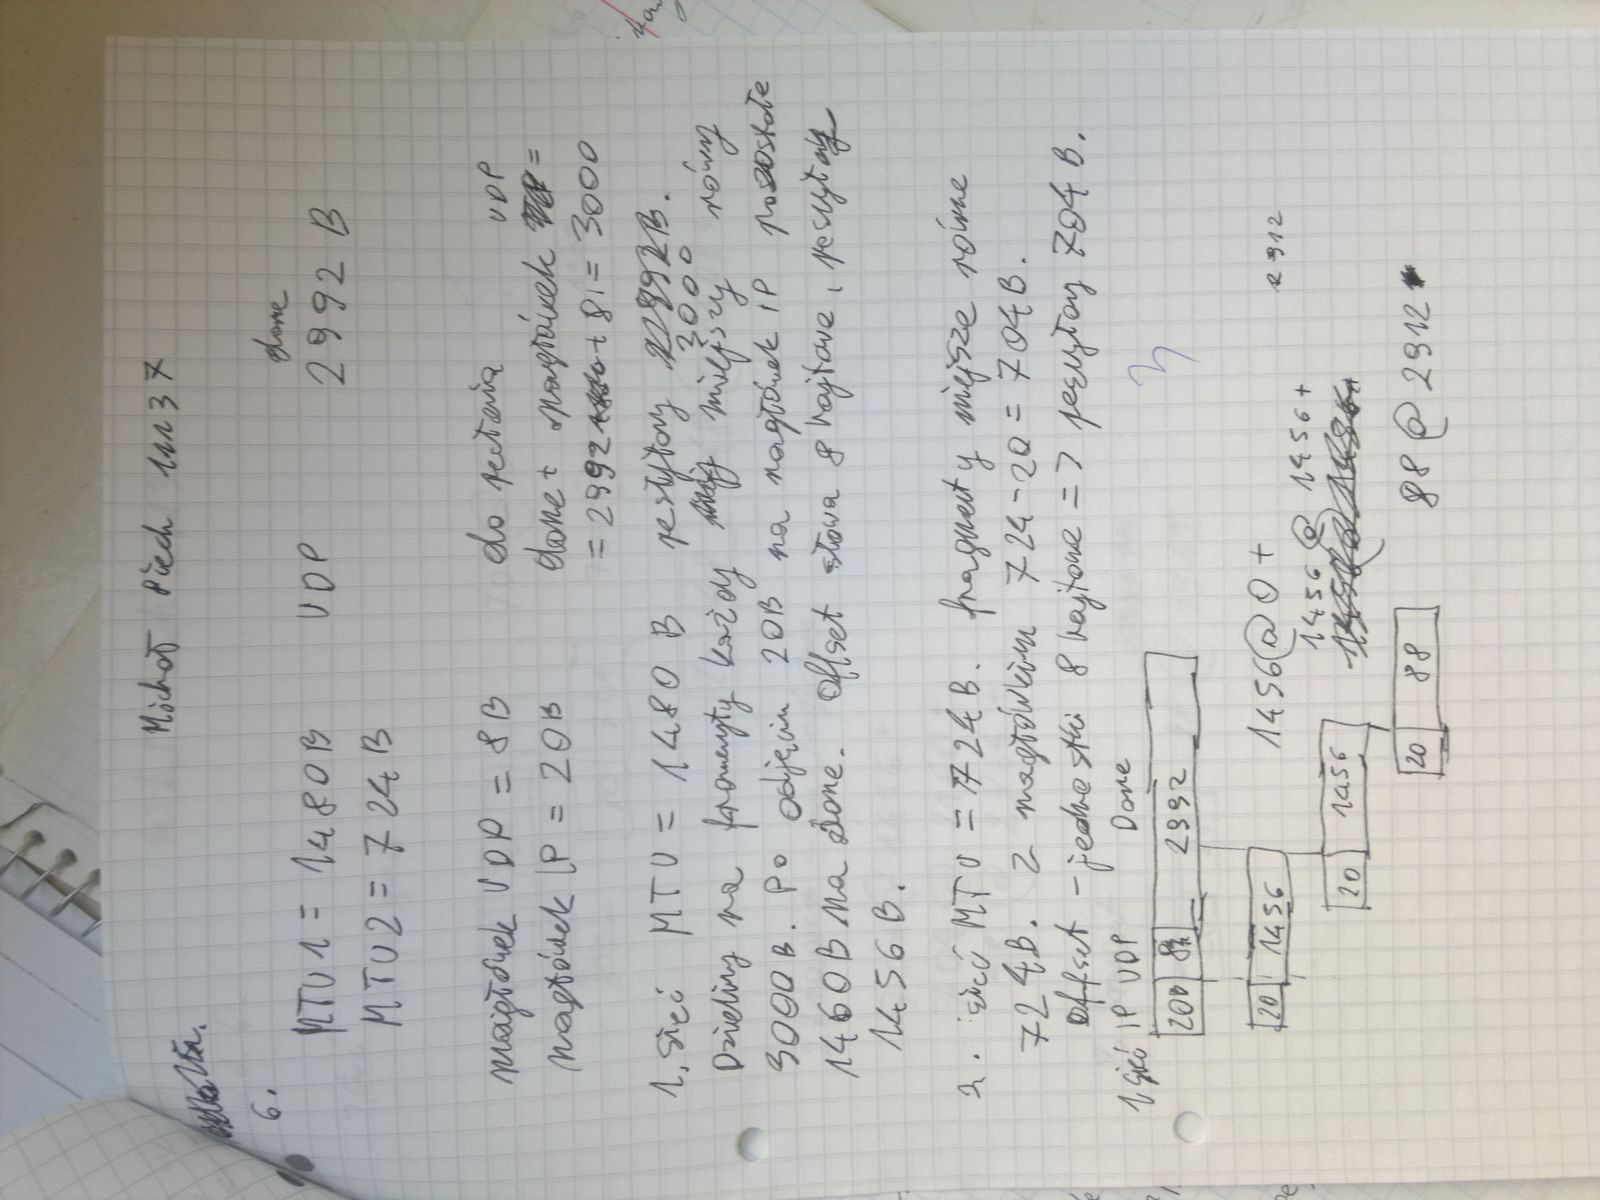 Michał Piech 11137
6.
dane
MTU1 = 1480B UDP 2992 B
MTU2 = 724B
nagłówek UDP = 8B do
UDP
nagłówek IP = 20B dane + nagłówek =
= 2992 + 8 = 3000
1. sieć MTU = 1480 B
3000
Dzielimy na każdy miejszy równy
3000B. Po odjęciu 20B na nagłówek IP pozostałe
1460B na dane. Offset słowa 8 bajtowe,
1456 B.
2. sieć MTU = 724B. fragmenty miejsze równe
724B. Z nagłówkiem 724-20 = 704B.
offset - jednostki 8 bajtowe => 704 B.
1 sieć IP UDP Dane
3
20B 8 2992
20 1456 1456@0+
2912
1456@1456+
20 1456
20 88 88@2912